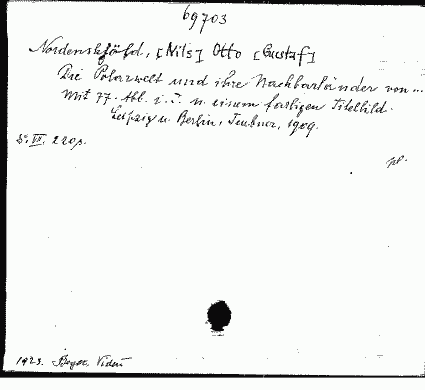 69703
Nordenskjöld, [Nils] Otto [Gustaf]
Die Polarwelt und ihre Nachbarländer von ...
Mit 77. Abb. i. T. u. einem farbigen Titelbild.
Leipzig u. Berlin, Teubner, 1909.
8°. VII. 220 p.
pl.
1923.